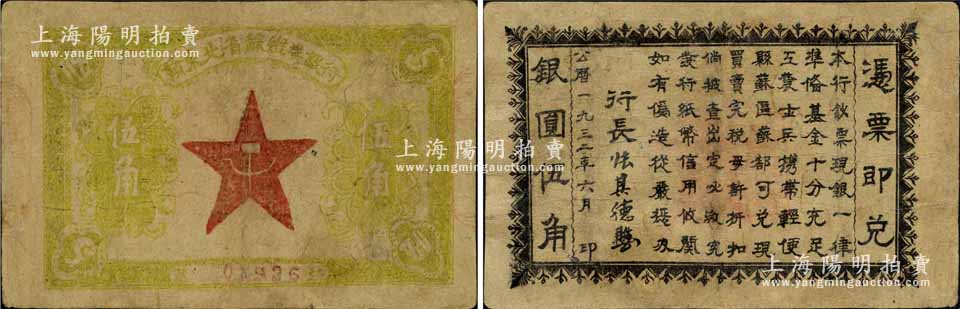 上海陽明拍賣
www.yangmingauction.com
伍角
伍角
上海陽明拍賣
www.yangmingauction.com
憑票即兌
本行鈔票現銀一律
準備基金十分充足
工農士兵携帶輕便
縣蘇區蘇都可兌現
買賣完稅毋折扣
倘被查出定必激究
發行紙幣信用攸關
如有偽造從嚴懲办
行長張其德
公曆一九三二年六月 印
銀圓伍角
上海陽明拍賣
www.yangmingauction.com